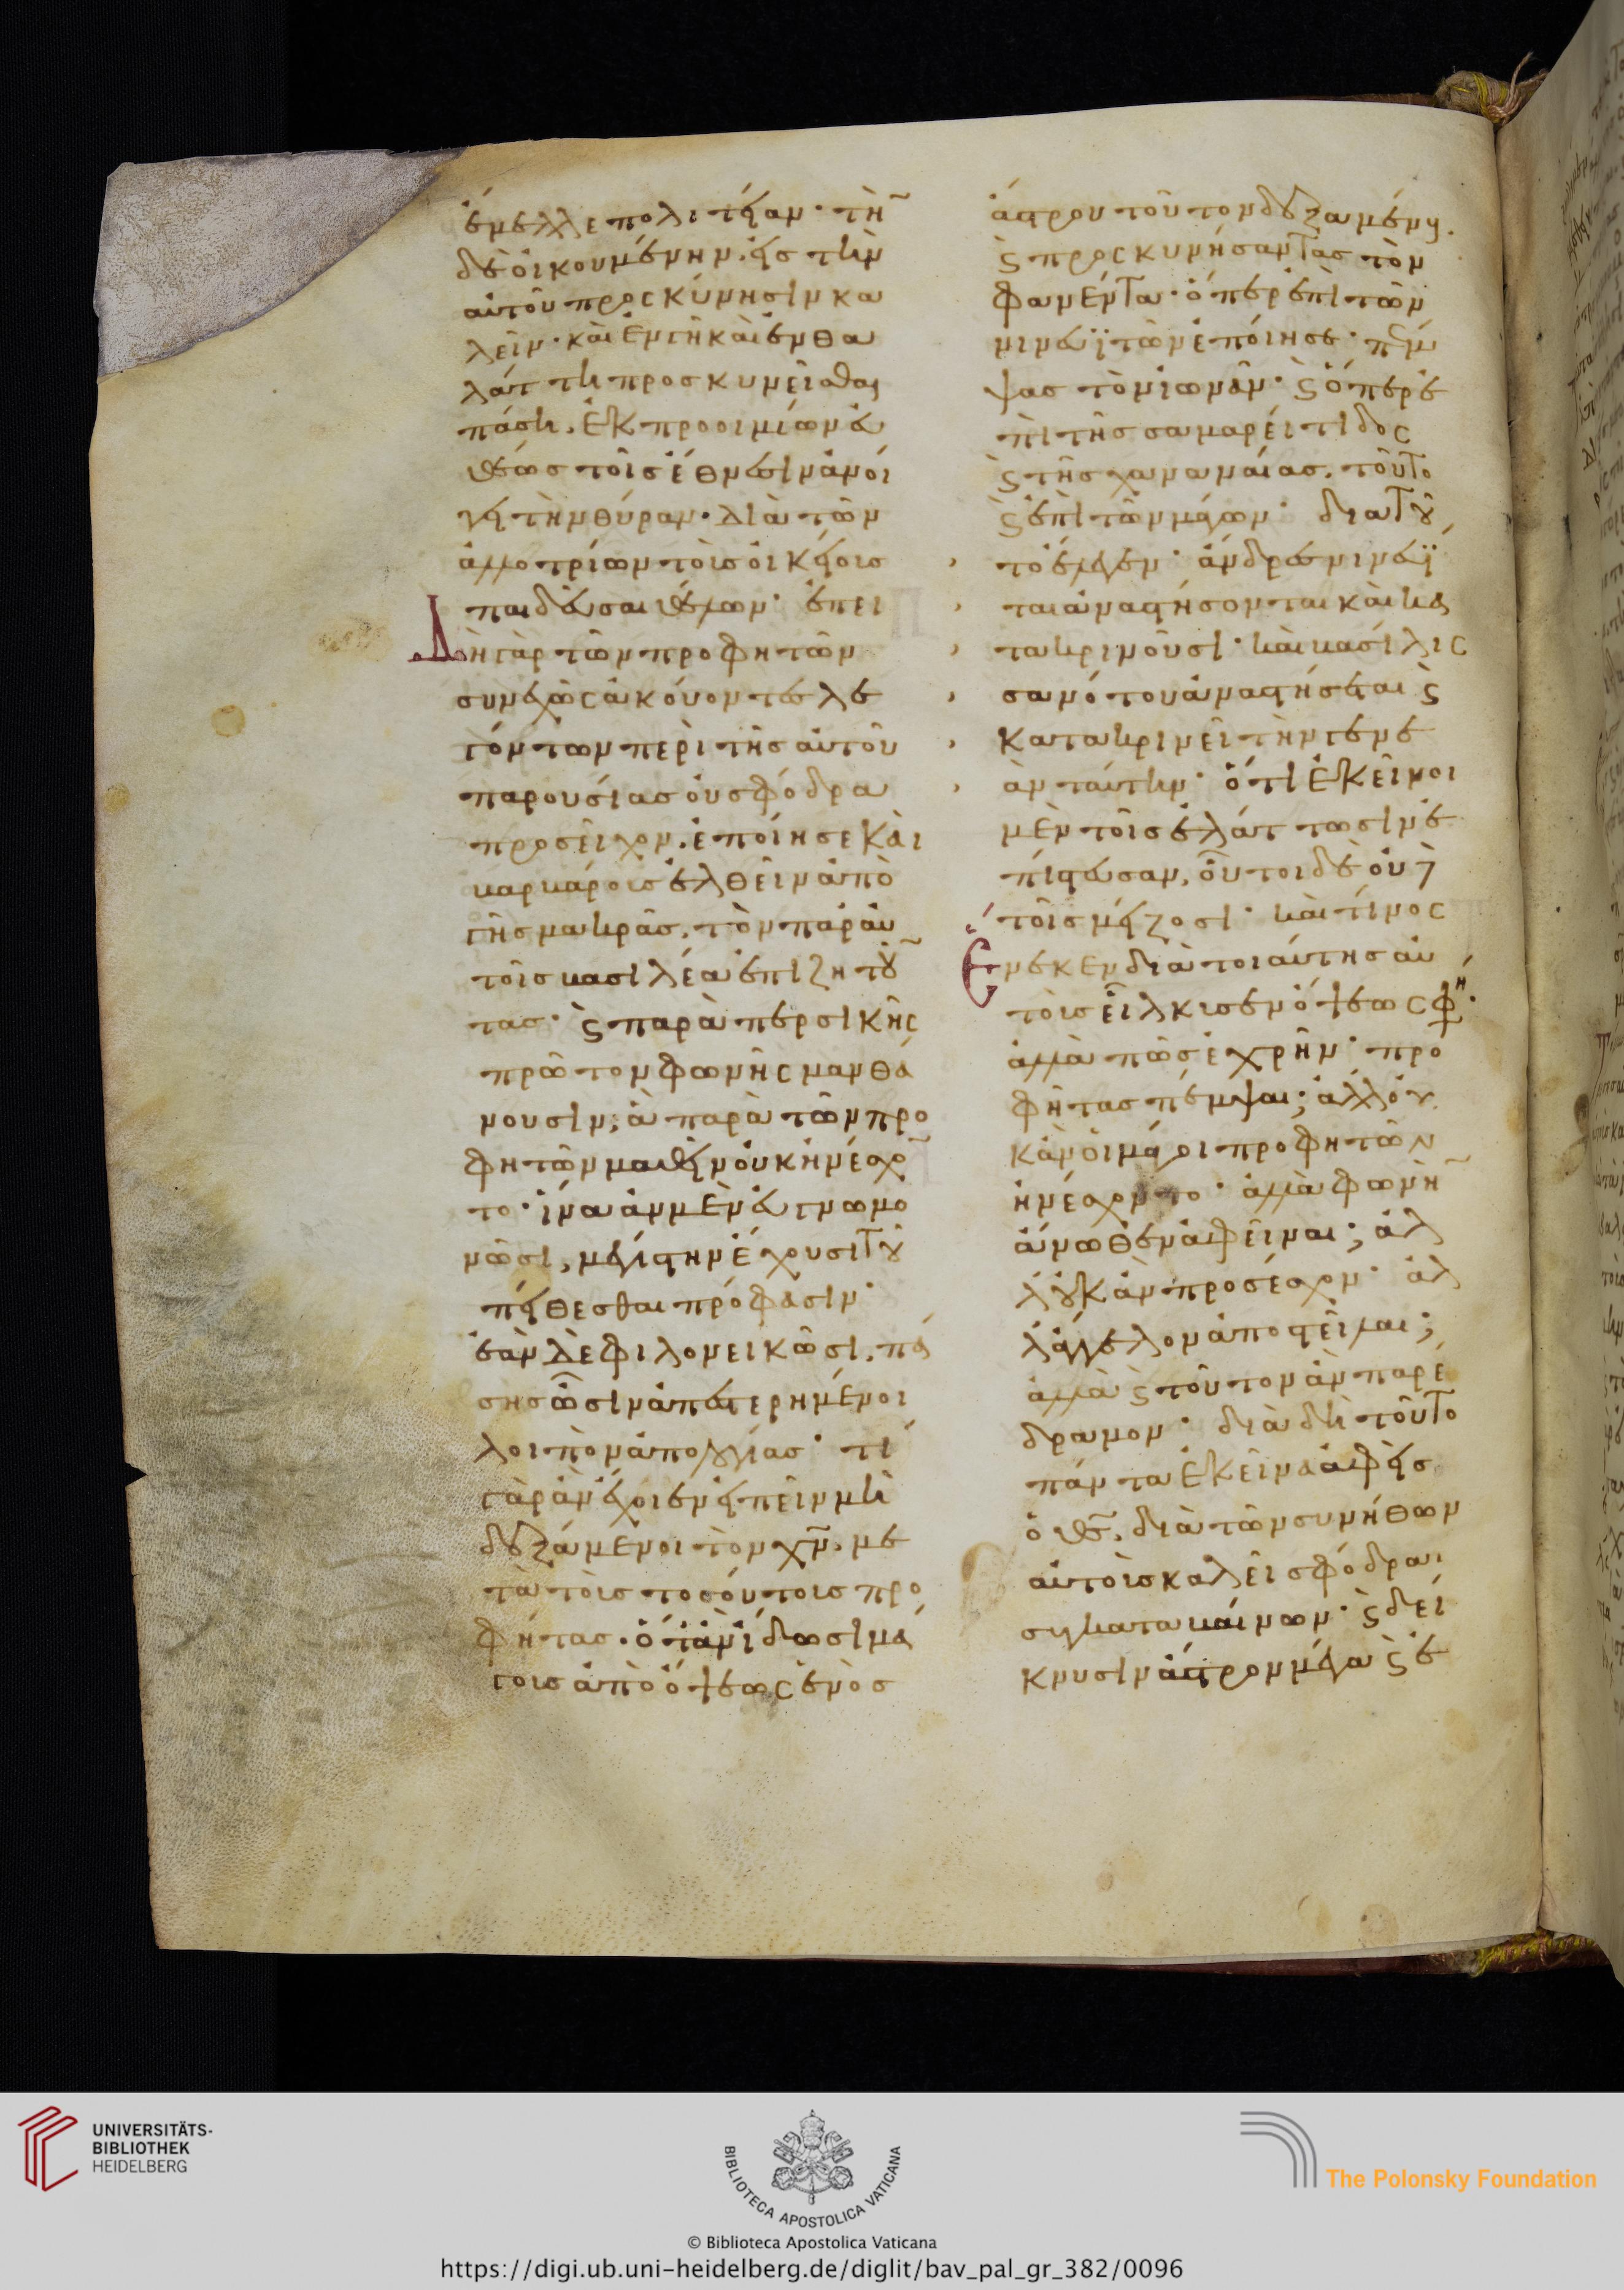 ἔμελλε πολιτείαν· τὴν
δὲ οἰκουμένην. εἰς τὴν
αὐτοῦ προσκύνησιν κα
λεῖν· καὶ ἐν γῆ καὶ ἐν θα
λάττη προσκυνεῖσθαι
πάση. ἐκ προοιμίων εὐ
θέως τοῖς ἔθνεσιν ἀνοί
γει τὴν θύραν· διὰ τῶν
ἀλλοτρίων τοὺς οἰκείους
παιδεῦσαι θέλων· ἐπει
Δὴ γὰρ τῶν προφητῶν
συνεχῶς ἀκούοντες λε
γόντων περὶ τῆς αὐτοῦ
παρουσίας οὐ σφόδρα
προσεῖχον. ἐποίησε καὶ
βαρβάρους ἐλθεῖν ἀπὸ
γῆς μακρᾶς. τὸν παρ' αὐ
τοῖς βασιλέα ἐπιζητοῦν
τας· ϗ παρὰ περσικῆς
πρῶτον φωνῆς μανθά
νουσιν; ἃ παρὰ τῶν προ
φητῶν μαθεῖν οὐκ ἠνέσχον
το· ἵνα ἂν μὲν εὐγνωμο
νῶσι, μεγίστην ἔχουσι τοῦ
πείθεσθαι πρόφασιν·
ἐὰν δὲ φιλονεικῶσι. πά
σης ὦσιν ἀπεστερημένοι
λοιπὸν ἀπολογίας· τί
γὰρ ἂν ἔχοιεν εἰπεῖν μὴ
δεξάμενοι τὸν χν. με
τὰ τοὺς τοσούτους προ
φήτας. ὅταν ἴδωσι μά
γους ἀπὸ ὄψεως ἑνὸς
ἄστρου τοῦτον δεξαμένου.
ϗ προσκυνήσαντας τὸν
φανέντα· ὅπερ ἐπὶ τῶν
νινευϊτῶν ἐποίησε· πέμ
ψας τὸν ἰωνᾶν· ϗ ὅπερ ἐ
πὶ τῆς σαμαρείτιδος
ϗ τῆς χαναναίας. τοῦτο
ϗ ἐπὶ τῶν μάγων· διατοῦ
το ἔλεγεν· ἄνδρες νινευϊ
ται ἀναστήσονται καὶ κα
τακρινοῦσι· καὶ βασίλις
σα νότου ἀναστήσεται ϗ
κατακρινεῖ τὴν γενε
ὰν ταύτην· ὅτι ἐκεῖνοι
μὲν τοῖς ἐλάττωσιν ἐ
πίστευσαν, οὗτοι δὲ οὐδὲ
τοῖς μείζοσι· καὶ τίνος
Ενεκεν διὰ τοιαύτης αὐ
τοὺς εἵλκυσεν ὄψεως φη·
ἀλλὰ πῶς ἐχρῆν· προ
φήτας πέμψαι; ἀλλ' οὐ
κ ἂν οἱ μάγοι προφητῶν
ἠνέσχοντο· ἀλλὰ φωνὴν
ἄνωθεν ἀφεῖναι; ἀλ
λ' οὐκ ἂν προσέσχον· ἀλ
λ' ἄγγελον ἀποστεῖλαι;
ἀλλὰ ϗ τοῦτον ἂν παρέ
δραμον· διὰ δὴ τοῦτο
πάντα ἐκεῖνα ἀφεὶς
ὁ θς. διὰ τῶν συνήθων
αὐτοὺς καλεῖ σφόδρα
συγκαταβαίνων· ϗ δεί
κνυσιν ἄστρον μέγα ϗ ἐ
UNIVERSITÄTS-
BIBLIOTHEK
HEIDELBERG
BIBLIOTECA APOSTOLICA VATICANA
The Polonsky Foundation
© Biblioteca Apostolica Vaticana
https://digi.ub.uni-heidelberg.de/diglit/bav_pal_gr_382/0096